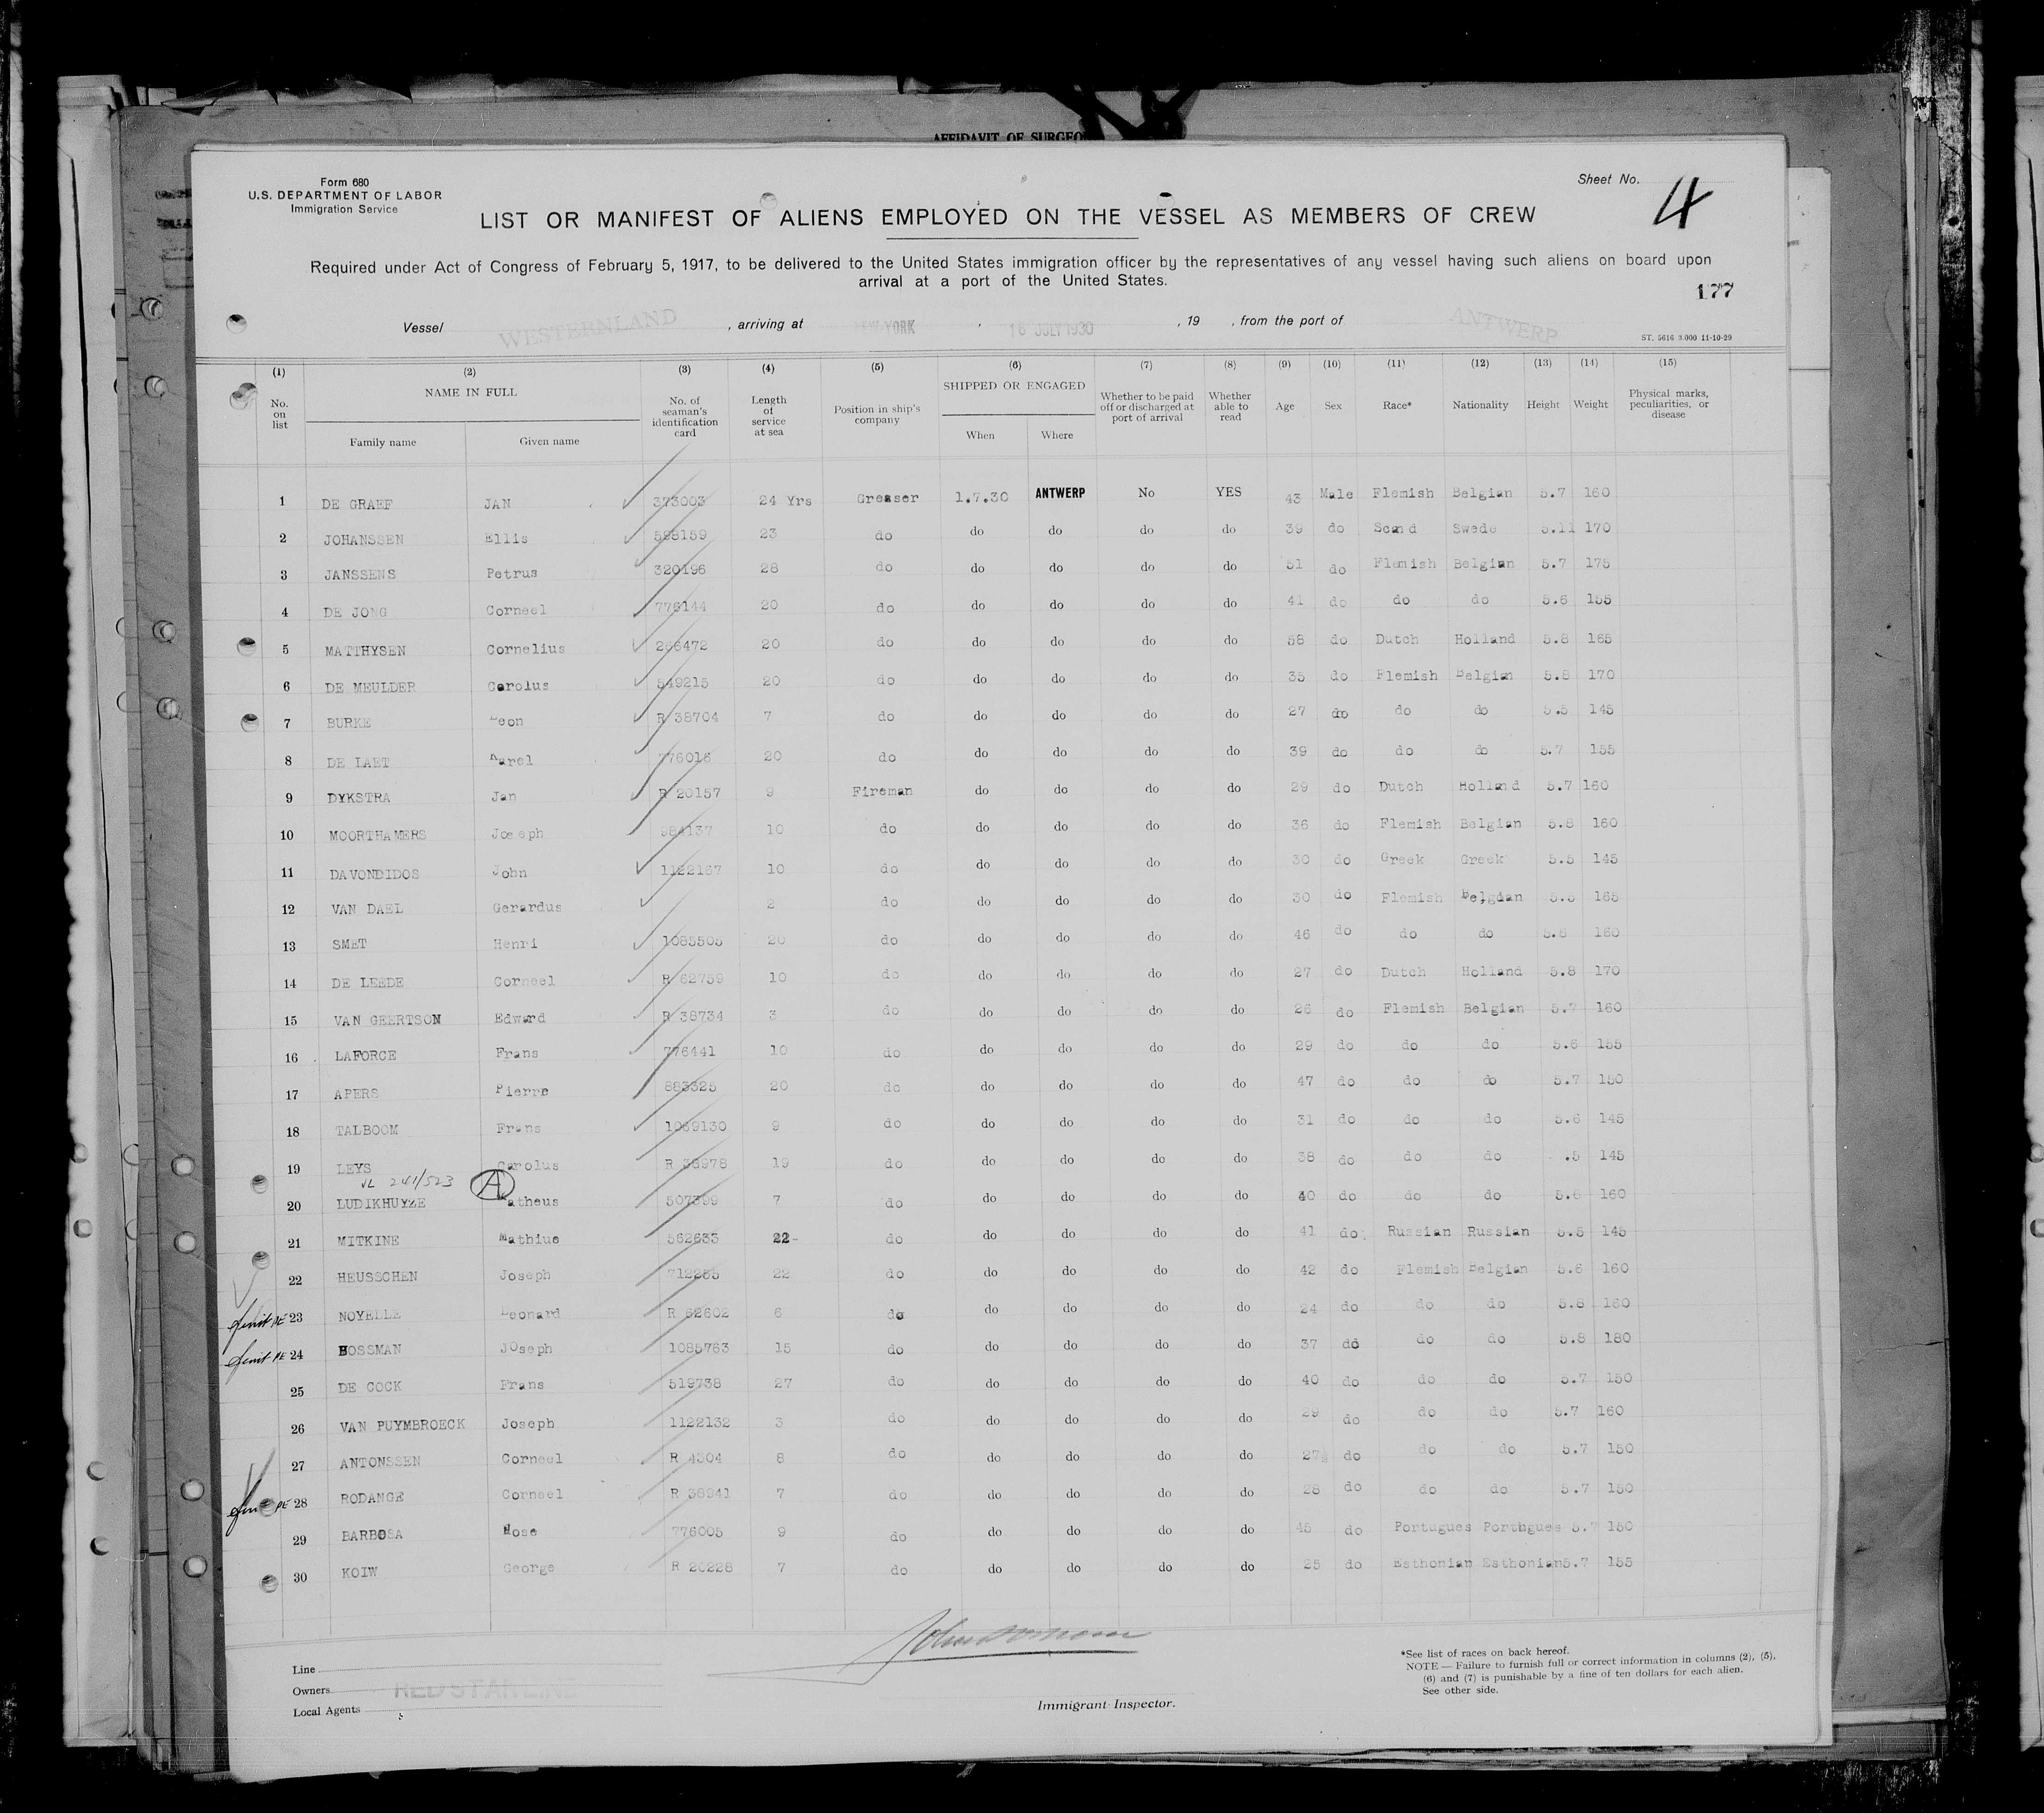 AFFIDAVIT OF SURGEO
Form 680
U.S. DEPARTMENT OF LABOR
Immigration Service
Sheet No. 4
LIST OR MANIFEST OF ALIENS EMPLOYED ON THE VESSEL AS MEMBERS OF CREW
Required under Act of Congress of February 5, 1917, to be delivered to the United States immigration officer by the representatives of any vessel having such aliens on board upon
arrival at a port of the United States.
177
Vessel WESTERNLAND , arriving at NEW YORK , 16 JULY 1930 , 19 , from the port of ANTWERP
ST. 5616 3.000 11-10-29
(1) (2) (3) (4) (5) (6) (7) (8) (9) (10) (11) (12) (13) (14) (15)
No. on list NAME IN FULL Family name Given name No. of seaman's identification card Length of service at sea Position in ship's company SHIPPED OR ENGAGED When Where Whether to be paid off or discharged at port of arrival Whether able to read Age Sex Race* Nationality Height Weight Physical marks, peculiarities, or disease
1 DE GRAEF JAN 373003 24 Yrs Greaser 1.7.30 ANTWERP No YES 43 Male Flemish Belgian 5.7 160
2 JOHANSSEN Ellis 598159 23 do do do do do 39 do Scand Swede 5.11 170
3 JANSSENS Petrus 320196 28 do do do do do 51 do Flemish Belgian 5.7 175
4 DE JONG Corneel 776144 20 do do do do do 41 do do do 5.6 155
5 MATTHYSEN Cornelius 266472 20 do do do do do 58 do Dutch Holland 5.8 165
6 DE MEULDER Carolus 549215 20 do do do do do 35 do Flemish Belgian 5.8 170
7 BURKE Leon R 38704 7 do do do do do 27 do do do 5.5 145
8 DE LAET Karel 776016 20 do do do do do 39 do do do 5.7 155
9 DYKSTRA Jan R 20157 9 Fireman do do do do 29 do Dutch Holland 5.7 160
10 MOORTHAMERS Joseph 984137 10 do do do do do 36 do Flemish Belgian 5.8 160
11 DAVONDIDOS John 1122167 10 do do do do do 30 do Greek Greek 5.5 145
12 VAN DAEL Gerardus 2 do do do do do 30 do Flemish Belgian 5.5 165
13 SMET Henri 1085505 20 do do do do do 46 do do do 5.6 160
14 DE LEEDE Corneel R 62759 10 do do do do do 27 do Dutch Holland 5.8 170
15 VAN GEERTSON Edward R 38734 3 do do do do do 26 do Flemish Belgian 5.7 160
16 LAFORCE Frans 776441 10 do do do do do 29 do do do 5.6 155
17 APERS Pierre 883325 20 do do do do do 47 do do do 5.7 150
18 TALBOOM Frans 1059130 9 do do do do do 31 do do do 5.6 145
19 LEYS Carolus R 38978 19 do do do do do 38 do do do .5 145
VL 241/523 A
20 LUDIKHUYZE Matheus 507399 7 do do do do do 40 do do do 5.6 160
21 MITKINE Mathius 562633 22 do do do do do 41 do Russian Russian 5.5 145
22 HEUSSCHEN Joseph 712255 22 do do do do do 42 do Flemish Belgian 5.6 160
23 NOYELLE Leonard R 62602 6 do do do do do 24 do do do 5.8 160
24 BOSSMAN JOseph 1085763 15 do do do do do 37 do do do 5.8 180
25 DE COCK Frans 519738 27 do do do do do 40 do do do 5.7 150
26 VAN PUYMBROECK Joseph 1122132 3 do do do do do 29 do do do 5.7 160
27 ANTONSSEN Corneel R 4304 8 do do do do do 27 do do do 5.7 150
28 RODANGE Corneel R 38941 7 do do do do do 28 do do do 5.7 150
29 BARBOSA Hose 776005 9 do do do do do 45 do Portugues Porthgues 5.7 150
30 KOIW George R 20228 7 do do do do do 25 do Esthonian Esthonian 5.7 155
Line
Owners RED STAR LINE
Local Agents
Immigrant Inspector.
*See list of races on back hereof.
NOTE — Failure to furnish full or correct information in columns (2), (5),
(6) and (7) is punishable by a fine of ten dollars for each alien.
See other side.